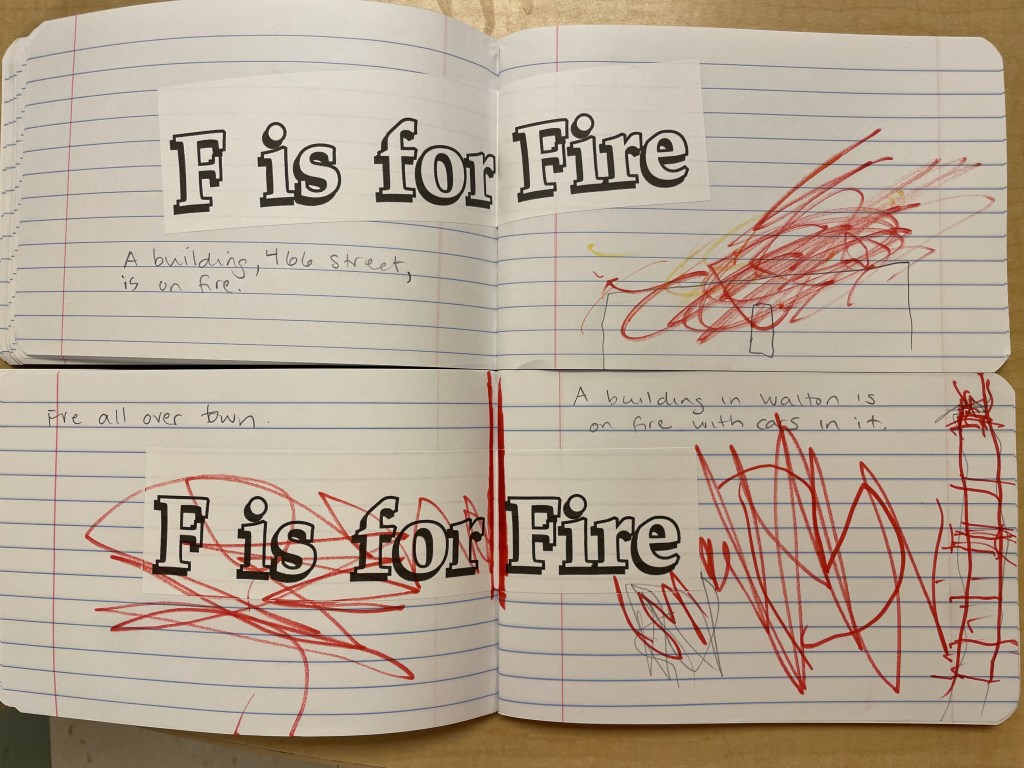 F is for Fire
A building, 466 street,
is on fire.
Fire all over town.
A building in Walton is
on fire with cars in it.
F is for Fire